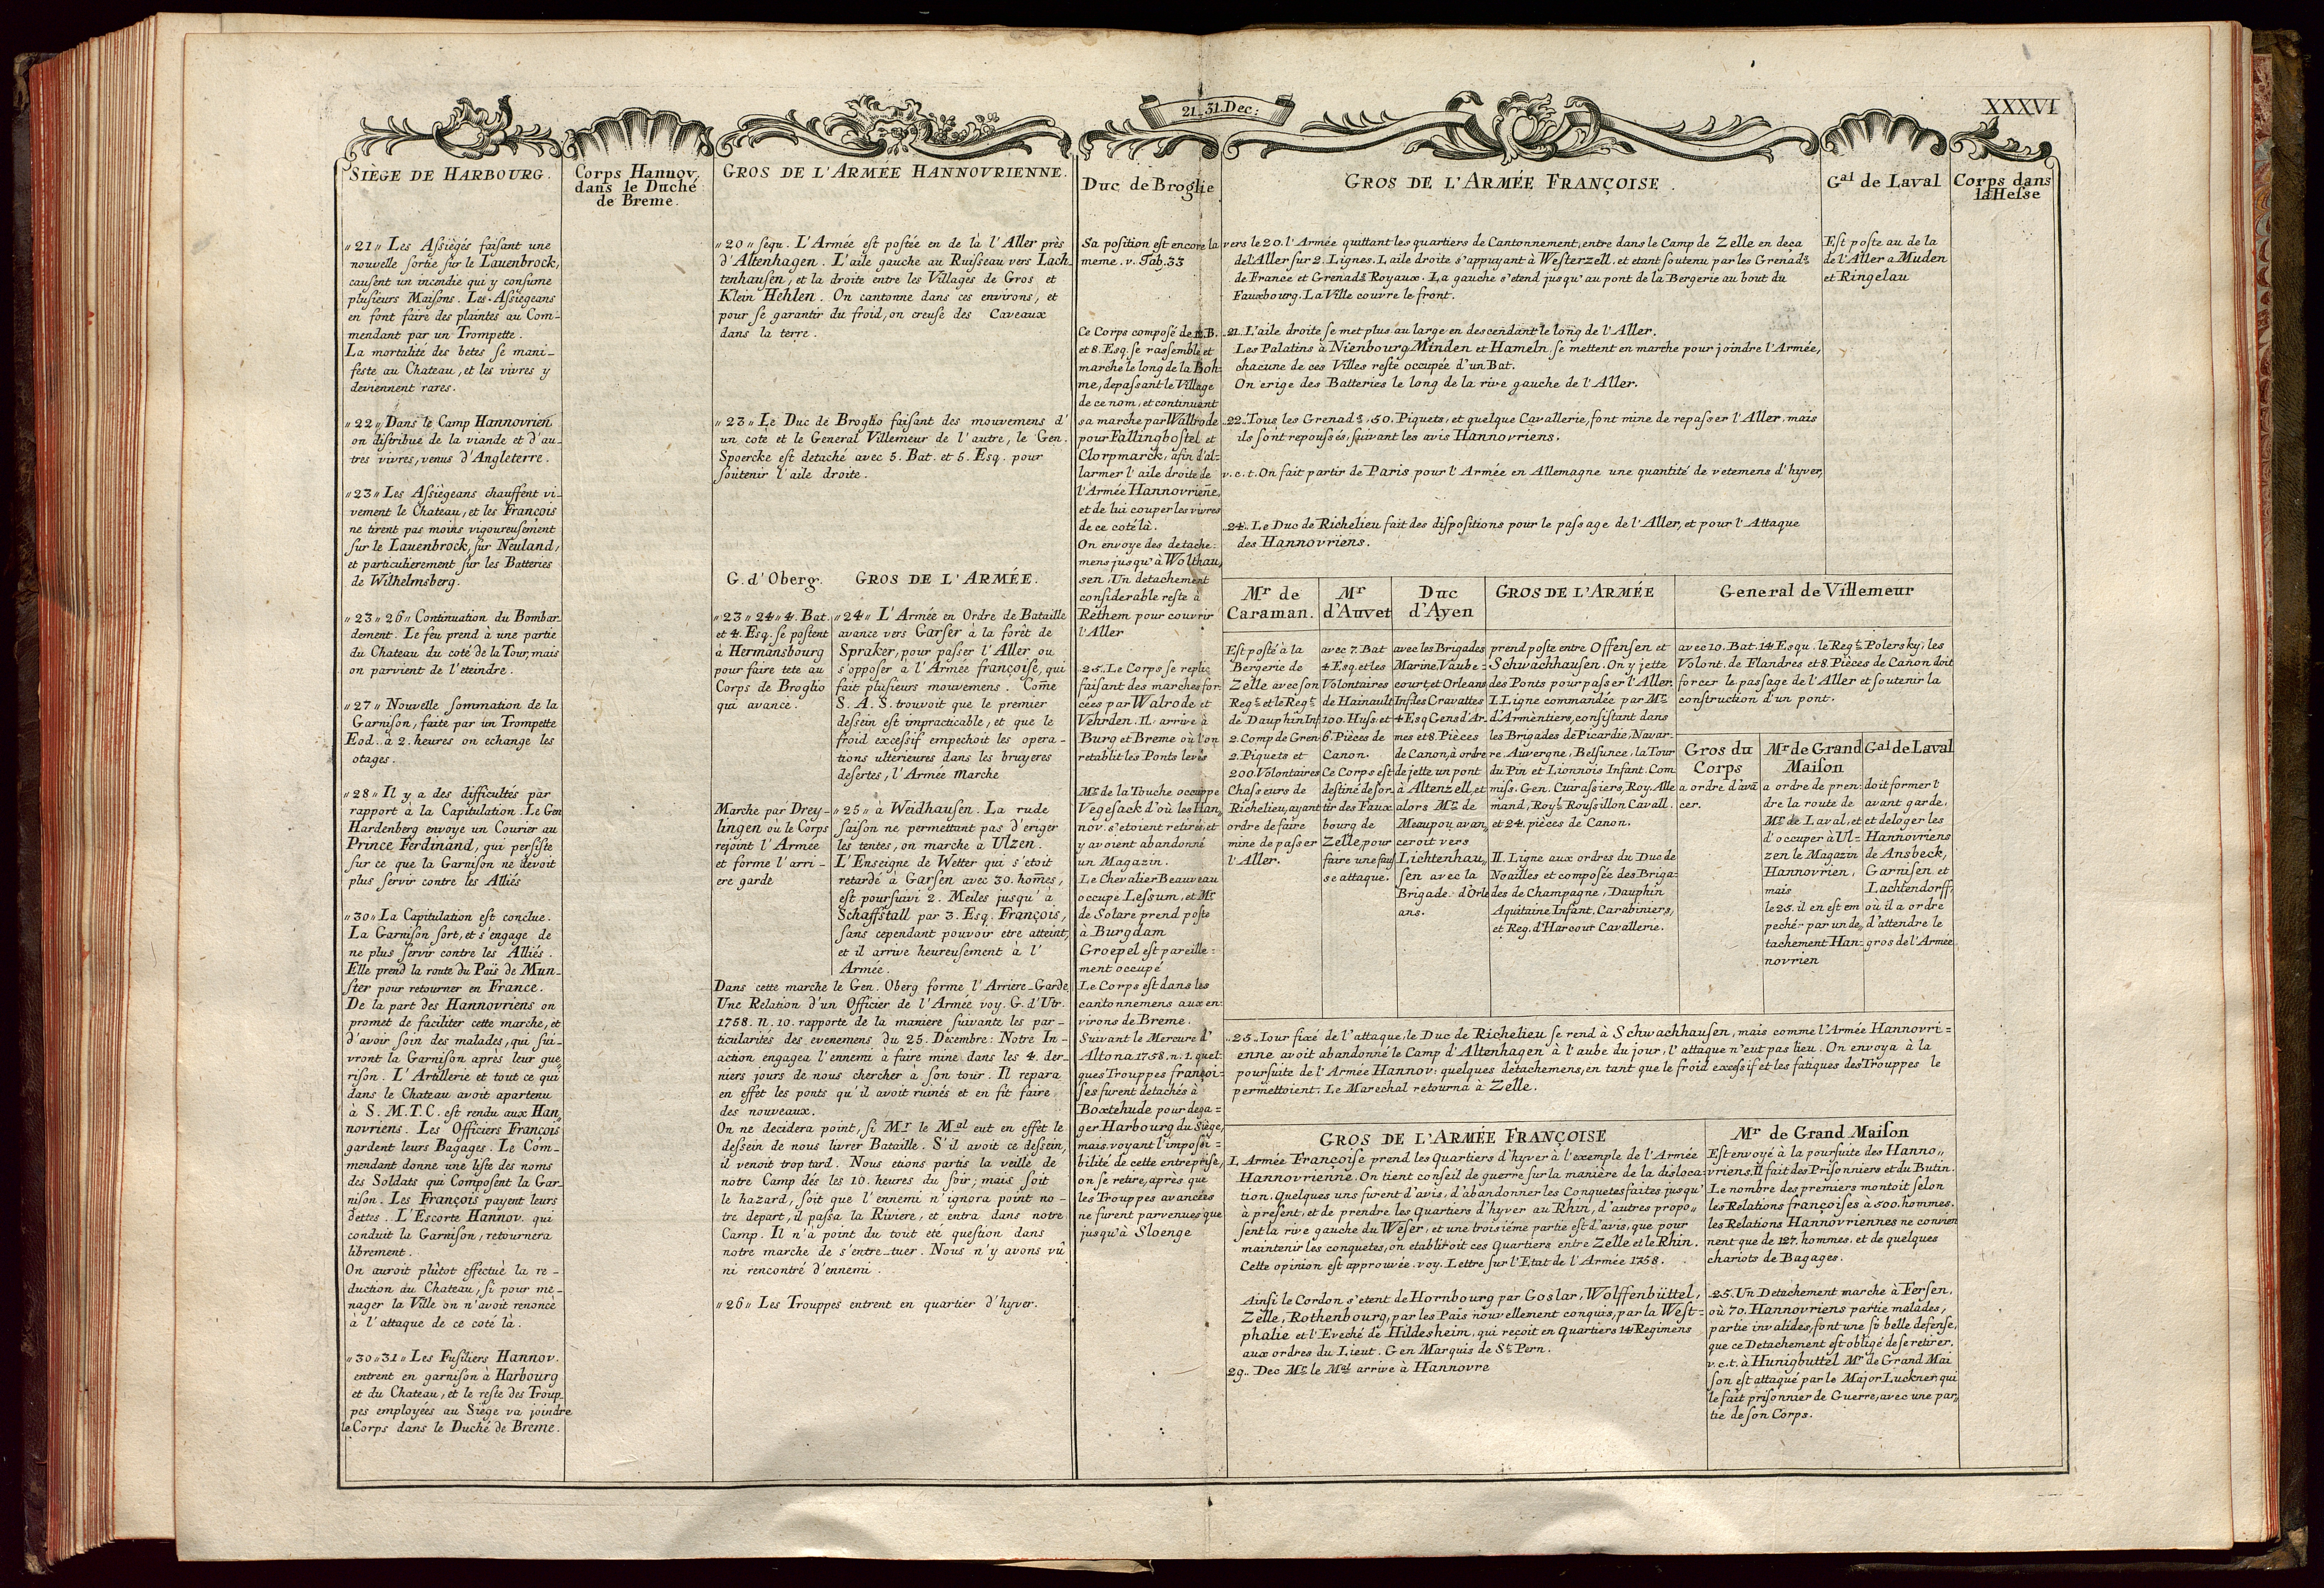 21_31.Dec:
XXXVI
SIÈGE DE HARBOURG.
„21„ Les Aſsiégés faiſant une
nouvelle ſortie ſur le Lauenbrock,
cauſent un incendie qui y conſume
plusieurs Maiſons. Les Aſsiegeans
en font faire des plaintes au Com-
mendant par un Trompette.
La mortalité des betes ſe mani-
feste au Chateau, et les vivres y
deviennent rares.
„22„ Dans le Camp Hannovrien
on diſtribue de la viande et d'au-
tres vivres, venus d'Angleterre.
„23„ Les Aſsiègeans chauffent vi-
vement le Chateau, et les François
ne tirent pas moins vigoureuſement
ſur le Lauenbrock, ſur Neuland,
et particulierement ſur les Batteries
de Wilhelmsberg.
„23„26„ Continuation du Bombar-
dement. Le feu prend à une partie
du Chateau du coté de la Tour, mais
on parvient de l'eteindre.
„27„ Nouvelle ſommation de la
Garniſon, faite par un Trompette
Eod. à 2. heures on echange les
otages.
„28„ Il y a des difficultés par
rapport à la Capitulation. Le Gen
Hardenberg envoye un Courier au
Prince Ferdinand, qui perſiſte
ſur ce que la Garniſon ne devoit
plus ſervir contre les Alliés
„30„ La Capitulation eſt conclue.
La Garniſon ſort, et s'engage de
ne plus ſervir contre les Alliés.
Elle prend la route du Païs de Mun-
ſter pour retourner en France.
De la part des Hannovriens on
promet de faciliter cette marche, et
d'avoir ſoin des malades, qui ſui-
vront la Garniſon après leur gue„
riſon. L'Artillerie et tout ce qui
dans le Chateau avoit apartenu
à S. M.T.C. eſt rendu aux Han„
novriens. Les Officiers François
gardent leurs Bagages. Le Com-
mendant donne une liſte des noms
des Soldats qui Compoſent la Gar-
niſon. Les François payent leurs
dettes. L'Escorte Hannov. qui
conduit la Garniſon, retournera
librement.
On auroit plûtot effectué la re-
duction du Chateau, ſi pour me-
nager la Ville on n'avoit renoncé
a l'attaque de ce coté là.
„30„31„ Les Fuſiliers Hannov.
entrent en garniſon à Harbourg
et du Chateau, et le reſte des Troup-
pes employées au Siége va joindre
le Corps dans le Duché de Breme.
Corps Hannov.
dans le Duché
de Breme.
GROS DE L'ARMÉE HANNOVRIENNE.
„20„ ſequ. L'Armée eſt poſtée en de là l'Aller près
d'Altenhagen. L'aile gauche au Ruiſſeau vers Lach-
tenhauſen, et la droite entre les Villages de Gros et
Klein Hehlen. On cantonne dans ces environs, et
pour ſe garantir du froid, on creuſe des Caveaux
dans la terre.
„23„ Le Duc de Broglio faiſant des mouvemens d'
un coté et le General Villemeur de l'autre, le Gen.
Spoercke eſt detaché avec 5. Bat. et 5. Esq. pour
ſoutenir l'aile droite.
G. d'Oberg.
„23„24„ 4. Bat.
et 4. Esq. ſe poſtent
à Hermansbourg
pour faire tete au
Corps de Broglio
qui avance.
Marche par Drey-
lingen où le Corps
rejoint l'Armée
et forme l'arri-
ere garde
GROS DE L'ARMÉE.
„24„ L'Armée en Ordre de Bataille
avance vers Garſer à la forêt de
Spraker, pour paſſer l'Aller ou
s'opposer à l'Armée françoiſe, qui
fait pluſieurs mouvemens. Com̅e
S. A. S. trouvoit que le premier
deſſein eſt impracticable, et que le
froid exceſſif empechoit les opera-
tions ulterieures dans les bruyeres
deſertes, l'Armée marche
„25„ à Weidhauſen. La rude
ſaiſon ne permettant pas d'eriger
les tentes, on marche à Ulzen.
L'Enſeigne de Wetter qui s'etoit
retardé à Garſen avec 30. hom̅es,
eſt pourſuivi 2. Meiles jusqu'à
Schaffſtall par 3. Esq. François,
ſans cependant pouvoir etre atteint,
et il arrive heureuſement à l'
Armée.
Dans cette marche le Gen. Oberg forme l'Arriere-Garde
Une Relation d'un Officier de l'Armée voy. G. d'Utr.
1758. N. 10. rapporte de la maniere ſuivante les par-
ticularités des evenemens du 25. Decembre: Notre In-
action engagea l'ennemi à faire mine dans les 4. der-
niers jours de nous chercher à ſon tour. Il repara
en effet les ponts qu'il avoit ruinés et en fit faire
des nouveaux.
On ne decidera point, ſi Mr le Mal eut en effet le
deſſein de nous livrer Bataille. S'il avoit ce deſſein,
il venoit trop tard. Nous etions partis la veille de
notre Camp dès les 10. heures du ſoir; mais ſoit
le hazard, ſoit que l'ennemi n'ignora point no-
tre depart, il paſſa la Riviere, et entra dans notre
Camp. Il n'à point du tout eté queſtion dans
notre marche de s'entre-tuer. Nous n'y avons vû
ni rencontré d'ennemi.
„26„ Les Trouppes entrent en quartier d'hyver.
Duc de Broglie
Sa poſition eſt encore la
meme. v. Tab. 33
Ce Corps compoſé de B.
et 8. Esq. ſe rassemble et
marche le long de la Boh-
me, depaſſant le Village
de ce nom, et continuant
sa marche par Wallrode
pour Fallingboſtel et
Clorpmarck, afin d'al-
larmer l'aile droite de
l'Armée Hannovrien̅e,
et de lui couper les vivres
de ce coté là.
On envoye des detache-
mens jusqu'à Wolthau„
sen. Un detachement
conſiderable reſte à
Rethem pour couvrir
l'Aller
25. Le Corps ſe replie
faiſant des marches for-
cées par Walrode et
Vehrden. Il arrive à
Burg et Breme où l'on
retablit les Ponts levés
Mr. de la Touche occuppe
Vegeſack d'où les Han„
nov. s'etoient retirés, et
y avoient abandonné
un Magazin.
Le Chevalier Beauveau
occupe Leſsum, et Mr.
de Solare prend poſte
à Burgdam
Groepel eſt pareille-
ment occupé
Le Corps eſt dans les
cantonnemens aux en-
virons de Breme.
Suivant le Mercure d'
Altona 1758. n. 1. quel-
ques Trouppes françoi-
ſes furent detachés à
Boxtehude pour dega-
ger Harbourg du Siège,
mais voyant l'impoſſi-
bilité de cette entrepriſe,
on ſe retire, après que
les Trouppes avancées
ne furent parvenues que
jusqu'à Sloenge
GROS DE L'ARMÉE FRANÇOISE.
vers le 20. l'Armée quittant les quartiers de Cantonnement, entre dans le Camp de Zelle en deça
de l'Aller ſur 2. Lignes. L'aile droite s'appuyant à Weſterzell. et etant ſoutenu par les Grenads
de France et Grenads Royaux. La gauche s'etend jusqu'au pont de la Bergerie au bout du
Fauxbourg. La Ville couvre le front.
21. L'aile droite ſe met plus au large en descendant le long de l'Aller.
Les Palatins à Nienbourg Minden et Hameln, ſe mettent en marche pour joindre l'Armée,
chacune de ces Villes reſte occupée d'un Bat.
On erige des Batteries le long de la rive gauche de l'Aller.
22. Tous les Grenads, 50. Piquets, et quelque Cavallerie, font mine de repaſser l'Aller, mais
ils ſont repouſsés, ſuivant les avis Hannovriens.
v. c. t. On fait partir de Paris pour l'Armée en Allemagne une quantité de vetemens d'hyver,
24. Le Duc de Richelieu fait des diſpoſitions pour le paſsage de l'Aller, et pour l'Attaque
des Hannovriens.
Gal de Laval
Eſt poſte au de la
de l'Aller a Muden
et Ringelau
Corps dans
la Heſse
Mr de
Caraman.
Eſt poſté à la
Bergerie de
Zelle avec ſon
Regt. et le Regt.
de Dauphin Inf
2. Comp de Gren
2. Piquets et
200. Volontaires
Chaſseurs de
Richelieu, ayant
ordre de faire
mine de paſser
l'Aller.
Mr
d'Auvet
avec 7. Bat
4 Esq. et les
Volontaires
de Hainault
100. Huſs: et
6. Pièces de
Canon.
Ce Corps eſt
deſtiné de for-
tir des Faux
bourg de
Zelle, pour
faire une fauſ
se attaque.
Duc
d'Ayen
avec les Brigades
Marine, Vaube-
court, et Orleans
Inf. des Cravattes
4 Esq Gens d'Ar-
mes et 8. Pièces
de Canon, à ordre
de jette un pont
à Altenzell, et
alors Mr. de
Meaupou avan„
ceroit vers
Lichtenhau„
ſen avec la
Brigade d'Orle
ans.
GROS DE L'ARMÉE
prend poste entre Offenſen et
Schwachhauſen. On y jette
des Ponts pour paſser l'Aller.
I. Ligne commandée par Mr.
d'Armèntiers, conſiſtant dans
les Brigades de Picardie, Navar-
re. Auvergne, Belſunce, la Tour
du Pin et Lionnois Infant. Com
miſs. Gen. Cuiraſsiers, Roy. Alle
mand, Royl. Rouſsillon Cavall.
et 24. pièces de Canon.
II. Ligne aux ordres du Duc de
Noailles et compoſée des Briga-
des de Champagne, Dauphin
Aquitaine Infant, Carabiniers,
et Reg. d'Harcour Cavallerie.
General de Villemeur
avec 10. Bat. 14 Esqu. le Regt. Polersky, les
Volont. de Flandres et 8. Pièces de Canon doit
forcer le paſsage de l'Aller et ſoutenir la
conſtruction d'un pont.
Gros du
Corps
a ordre d'avā
cer.
Mr de Grand
Maiſon
a ordre de pren-
dre la route de
Mr. de Laval, et
d'occuper à Ul-
zen le Magazin
Hannovrien,
mais
le 25. il en eſt em
peché par un de„
tachement Han-
novrien
Gal de Laval
doit former l'
avant garde,
et deloger les
Hannovriens
de Ansbeck,
Garniſen et
Lachtendorff
où il a ordre
d'attendre le
gros de l'Armée
25. Iour fixé de l'attaque, le Duc de Richelieu ſe rend à Schwachhauſen, mais comme l'Armée Hannovri-
enne avoit abandonné le Camp d'Altenhagen à l'aube du jour, l'attaque n'eut pas lieu. On envoya à la
pourſuite de l'Armée Hannov: quelques detachemens, en tant que le froid exceſsif et les fatigues des Trouppes le
permettoient. Le Marechal retourna à Zelle.
GROS DE L'ARMÉE FRANÇOISE
L. Armée Francoiſe prend les Quartiers d'hyver à l'exemple de l'Armée
Hannovrienne. On tient conſeil de guerre ſur la manière de la disloca-
tion. Quelques uns furent d'avis, d'abandonner les Conquetes faites jusqu'
à preſent, et de prendre les Quartiers d'hyver au Rhin, d'autres propo„
ſent la rive gauche du Weſer, et une troiſiéme partie eſt d'avis, que pour
maintenir les conquetes, on etabliroit ces Quartiers entre Zelle et le Rhin.
Cette opinion eſt approuvée. voy. Lettre ſur l'Etat de l'Armée 1758.
Ainſi le Cordon s'etent de Hornbourg par Goslar, Wolffenbüttel,
Zelle, Rothenbourg, par les Païs nouvellement conquis, par la Weſt-
phalie et l'Eveché de Hildesheim, qui reçoit en Quartiers 14 Regimens
aux ordres du Lieut. Gen Marquis de St Pern.
29. Dec Mr. le Mal arrive à Hannovre
Mr de Grand Maiſon
Eſt envoyé à la pourſuite des Hanno„
vriens. Il fait des Priſonniers et du Butin.
Le nombre des premiers montoit ſelon
les Relations françoiſes à 500. hommes.
les Relations Hannovriennes ne convien
nent que de 127. hommes. et de quelques
chariots de Bagages.
25. Un Detachement marche à Ferſen,
où 70. Hannovriens partie malades,
partie invalides, font une ſi belle defenſe,
que ce Detachement eſt obligé de ſe retirer.
v. c. t. à Hunigbuttel Mr de Grand Mai
ſon est attaqué par le Major Luckner, qui
le fait priſonnier de Guerre, avec une par„
tie de ſon Corps.